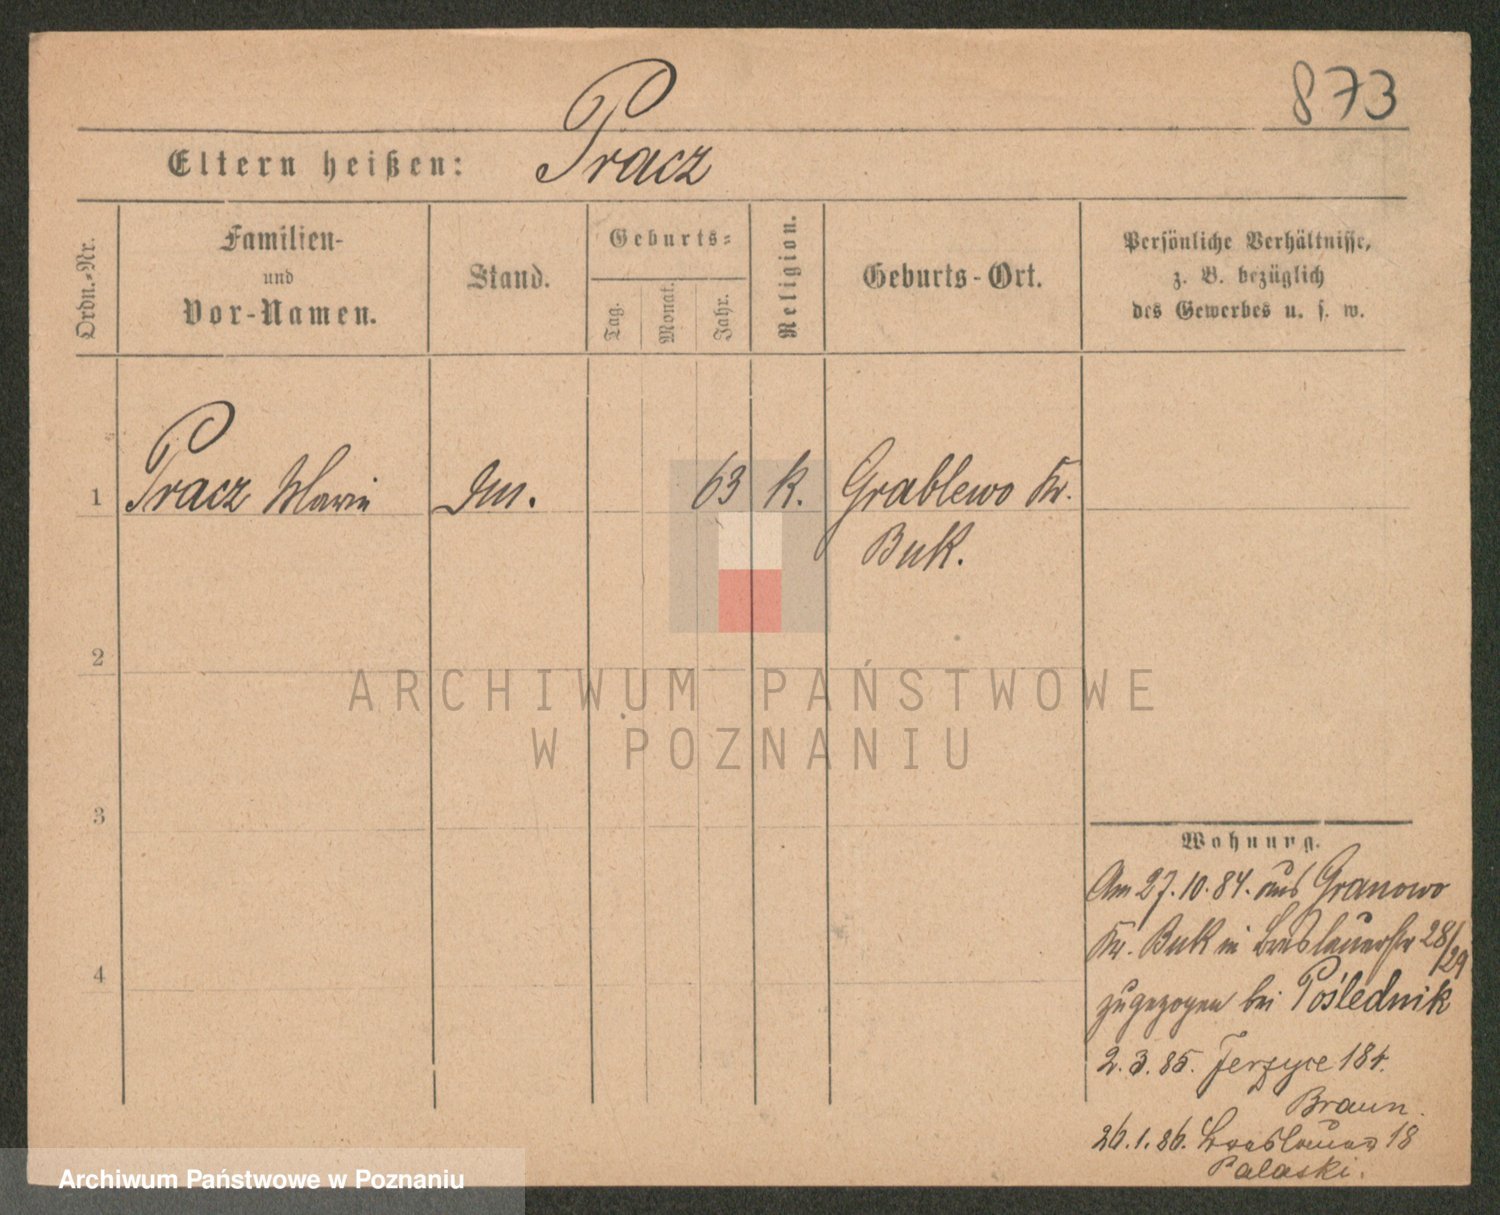 873
Eltern heißen: Pracz
Ordn.-Nr.
Familien-
und
Vor-Namen.
Stand.
Geburts-
Tag.
Monat.
Jahr.
Religion.
Geburts-Ort.
Persönliche Verhältnisse,
z. B. bezüglich
des Gewerbes u. s. w.
1 Pracz Marie 63 k. Grablewo Kr.
Buk.
2
3
4
ARCHIWUM PAŃSTWOWE
W POZNANIU
Wohnung.
Am 27.10.84. aus Granowo
Kr. Buk in Breslauerstr 28/29
zugezogen bei Poślednik
2.3.85. Jerzyce
Braun.
26.1.86. Breslauer 18
Palaski.
Archiwum Państwowe w Poznaniu